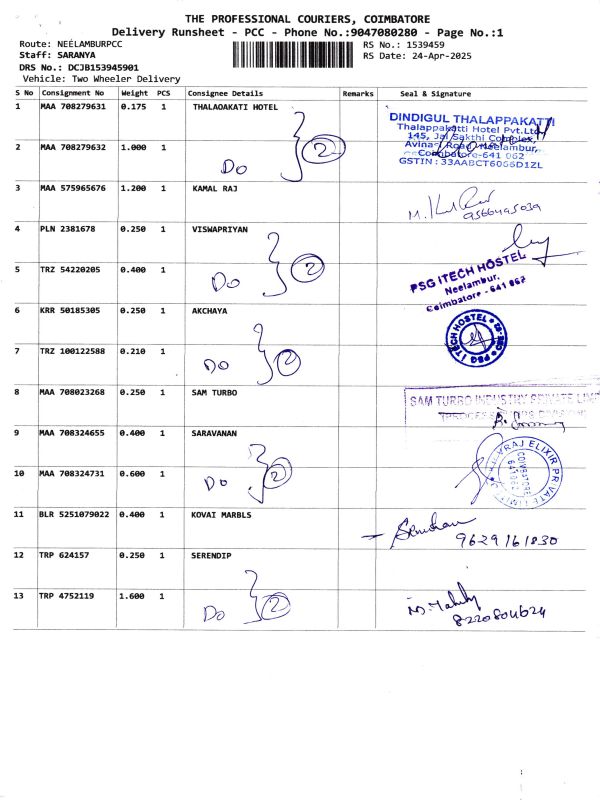 THE PROFESSIONAL COURIERS, COIMBATORE
Delivery Runsheet - PCC - Phone No.:9047080280 - Page No.:1
Route: NEELAMBURPCC
RS No.: 1539459
Staff: SARANYA
RS Date: 24-Apr-2025
DRS No.: DCJB153945901
Vehicle: Two Wheeler Delivery
S No Consignment No Weight PCS Consignee Details Remarks Seal & Signature
1 MAA 708279631 0.175 1 THALAOAKATI HOTEL
DINDIGUL THALAPPAKATTI
Thalappakatti Hotel Pvt.Ltd
145, Jai Sakthi Complex,
Avinasi Road, Neelambur,
Coimbatore-641 062
GSTIN : 33AABCT6066D1ZL
2 MAA 708279632 1.000 1 Do 2
3 MAA 575965676 1.200 1 KAMAL RAJ
9566495039
4 PLN 2381678 0.250 1 VISWAPRIYAN
5 TRZ 54220205 0.400 1 Do 2
PSG ITECH HOSTEL
Neelambur,
Coimbatore - 641 062
6 KRR 50185305 0.250 1 AKCHAYA
PSG ITECH HOSTEL
7 TRZ 100122588 0.210 1 Do 2
8 MAA 708023268 0.250 1 SAM TURBO
SAM TURBO INDUSTRY PRIVATE LIM
9 MAA 708324655 0.400 1 SARAVANAN
10 MAA 708324731 0.600 1 Do 2
ELIXIR PRIVATE LIMITED
COIMBATORE
641 062
11 BLR 5251079022 0.400 1 KOVAI MARBLS
9629161830
12 TRP 624157 0.250 1 SERENDIP
13 TRP 4752119 1.600 1 Do 2
8220804624